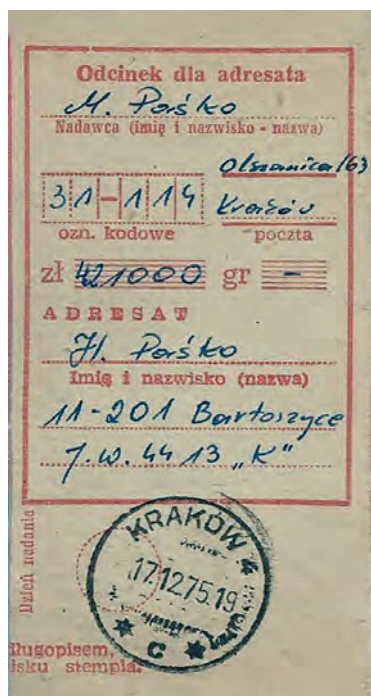 Odcinek dla adresata
M. Paśko
Nadawca (imię i nazwisko - nazwa)
Olszanica/63
31-114 Kraków
ozn. kodowe poczta
zł 421000 gr –
ADRESAT
H. Paśko
Imię i nazwisko (nazwa)
11-201 Bartoszyce
J.W. 4413 „K”
Dzień nadania
KRAKÓW 4
17.12.75.19
C
ługopisem,
isku stempla.